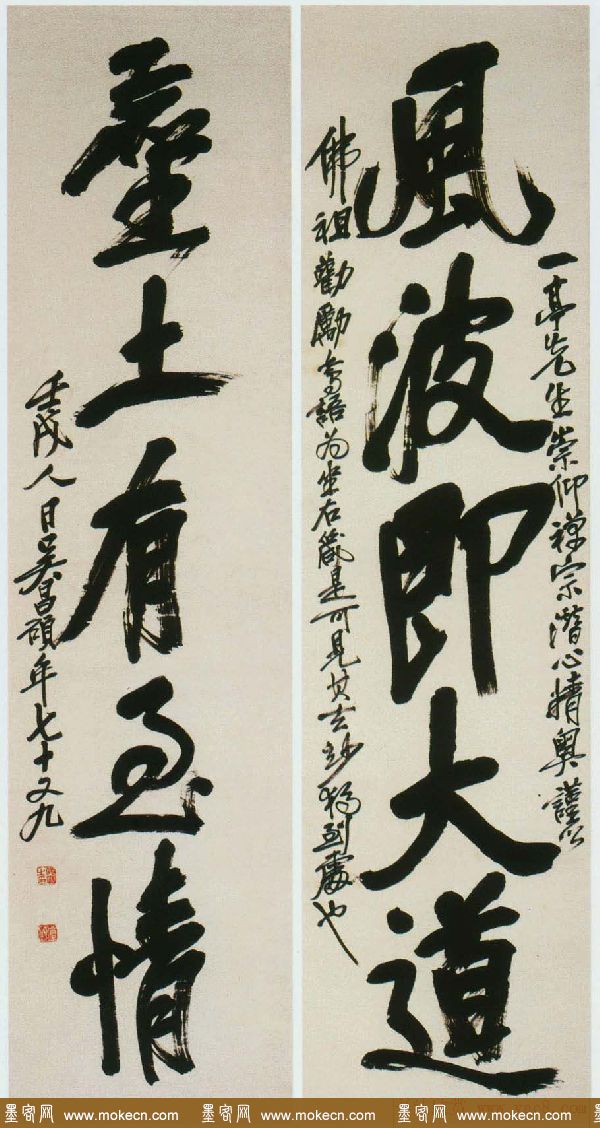 風波即大道
一亭先生崇仰禪宗潛心精奧謹以
佛祖勸勵語為坐右箴是可見其玄妙獨到處也
塵土有至情
壬戌人日吳昌碩年七十又九
墨客网 www.mokecn.com 墨客网 www.mokecn.com 墨客网 www.mokecn.com 墨